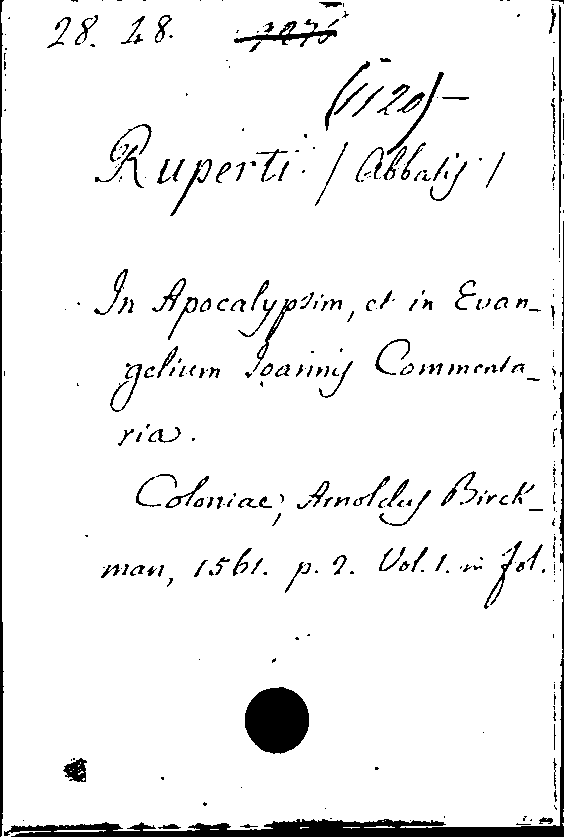 28. 28.
(1120)
Ruperti. / Abbatis. /
In Apocalypsim, et in Evan-
gelium Ioannis Commenta-
ria.
Coloniae, Arnoldus Birck-
man, 1561. p. 2. Vol. 1. in fol.